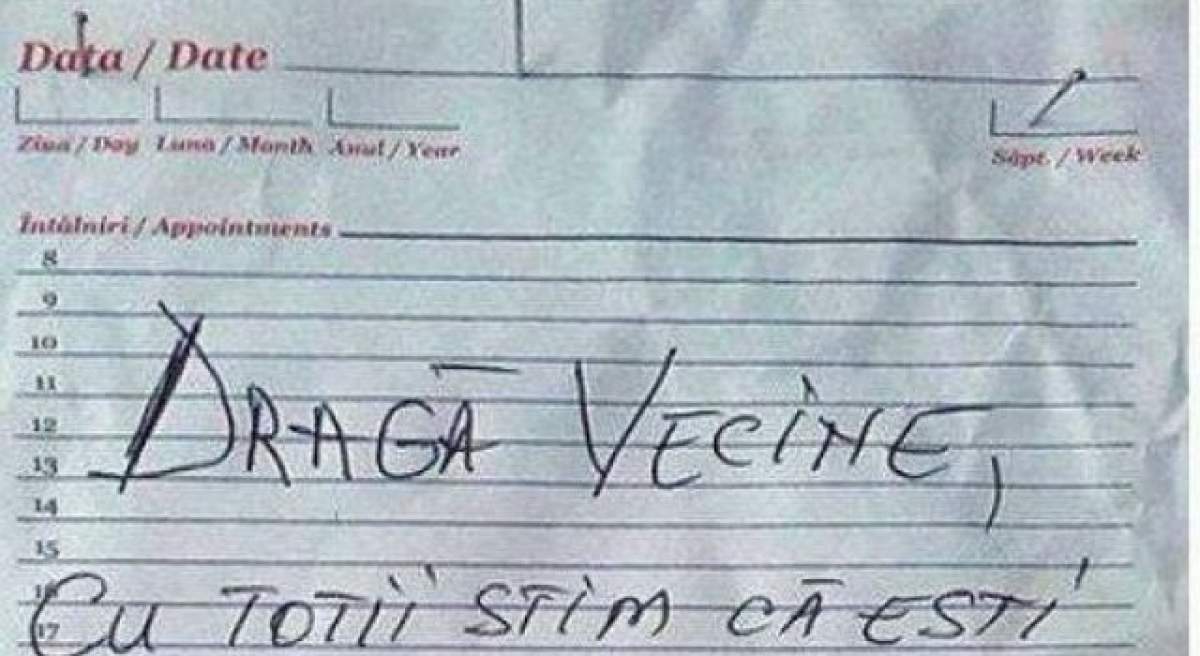 Data / Date
Ziua / Day Luna / Month Anul / Year Săpt. / Week
Întâlniri / Appointments
8
9
10
11
12
13
14
15
16
17
DRAGĂ VECINE,
CU TOTII STIM CĂ ESTI